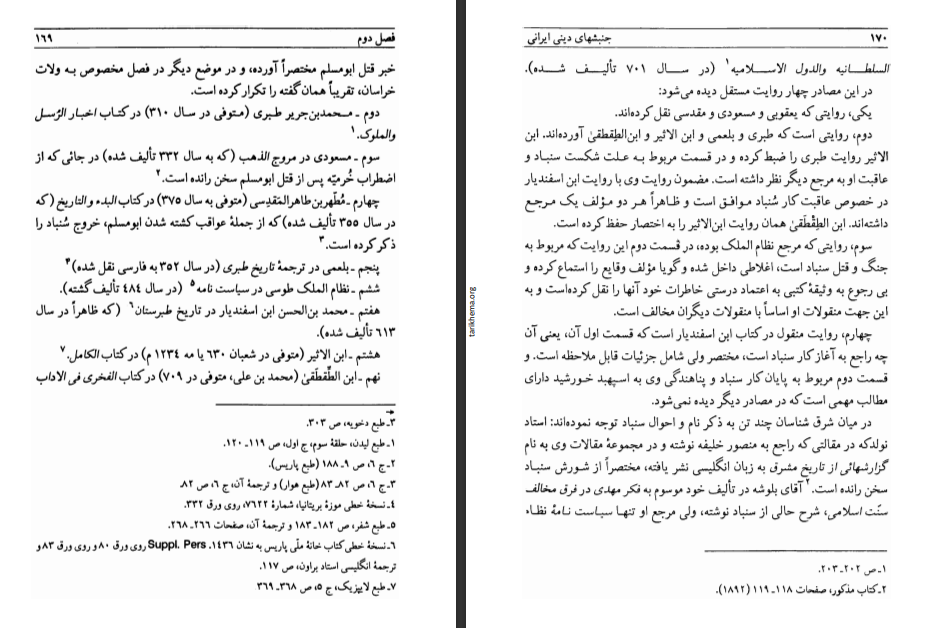 فصل دوم ۱۶۹
خبر قتل ابومسلم مختصراً آورده، و در موضع دیگر در فصل مخصوص به ولات
خراسان، تقریباً همان گفته را تکرار کرده است.
دوم ـ محمدبن‌جریر طبری (متوفی در سال ۳۱۰) در کتاب اخبار الرّسل
والملوک.۱
سوم ـ مسعودی در مروج الذهب (که به سال ۳۳۲ تألیف شده) در جائی که از
اضطراب خُرمیّه پس از قتل ابومسلم سخن رانده است.۲
چهارم ـ مُطهّربن‌طاهرالمَقدِسی (متوفی به سال ۳۷۵) در کتاب البدء و التاریخ (که
در سال ۳۵۵ تألیف شده) که از جملهٔ عواقب کشته شدن ابومسلم، خروج سُنباد را
ذکر کرده است.۳
پنجم ـ بلعمی در ترجمهٔ تاریخ طبری (در سال ۳۵۲ به فارسی نقل شده)۴
ششم ـ نظام الملک طوسی در سیاست نامه۵ (در سال ۴۸۴ تألیف گشته).
هفتم ـ محمد بن‌الحسن ابن اسفندیار در تاریخ طبرستان۶ (که ظاهراً در سال
۶۱۳ تألیف شده).
هشتم ـ ابن الاثیر (متوفی در شعبان ۶۳۰ یا مه ۱۲۳۴ م) در کتاب الکامل.۷
نهم ـ ابن الطِّقطَقیٰ (محمد بن علی، متوفی در ۷۰۹) در کتاب الفخری فی الاداب
۳ـ طبع دخویه، ص ۳۰۳.
۱ـ طبع لیدن، حلقهٔ سوم، ج اول، ص ۱۱۹ـ۱۲۰.
۲ـ ج ۶، ص ۹ـ۱۸۸ (طبع پاریس).
۳ـ ج ۶، ص ۸۲ـ۸۳ (طبع هوار) و ترجمهٔ آن، ج ۶، ص ۸۲.
۴ـ نسخهٔ خطی موزهٔ بریتانیا، شمارهٔ ۷۶۲۲، روی ورق ۳۳۲.
۵ـ طبع شفر، ص ۱۸۲ـ۱۸۳ و ترجمهٔ آن، صفحات ۲۶۶ـ۲۶۸.
۶ـ نسخهٔ خطی کتاب خانهٔ ملّی پاریس به نشان ۱۴۳۶. Suppl. Pers روی ورق ۸۰ و روی ورق ۸۳ و
ترجمهٔ انگلیسی استاد براون، ص ۱۱۷.
۷ـ طبع لایپزیک، ج ۵، ص ۳۶۸ـ۳۶۹
tarikhema.org
۱۷۰ جنبشهای دینی ایرانی
السلطـانیه والدول الاسـلامیه۱ (در سـال ۷۰۱ تألیـف شـده).
در این مصادر چهار روایت مستقل دیده می‌شود:
یکی، روایتی که یعقوبی و مسعودی و مقدسی نقل کرده‌اند.
دوم، روایتی است که طبری و بلعمی و ابن الاثیر و ابن‌الطِقطقیٰ آورده‌اند. ابن
الاثیر روایت طبری را ضبط کرده و در قسمت مربوط به علت شکست سنباد و
عاقبت او به مرجع دیگر نظر داشته است. مضمون روایت وی با روایت ابن اسفندیار
در خصوص عاقبت کار سُنباد مـوافـق اسـت و ظاهراً هـر دو مـؤلف یک مـرجـع
داشته‌اند. ابن الطِقْطَقیٰ همان روایت ابن‌الاثیر را به اختصار حفظ کرده است.
سوم، روایتی که مرجع نظام الملک بوده، در قسمت دوم این روایت که مربوط به
جنگ و قتل سنباد است، اغلاطی داخل شده و گویا مؤلف وقایع را استماع کرده و
بی رجوع به وثیقهٔ کتبی به اعتماد درستی خاطرات خود آنها را نقل کرده‌است و به
این جهت منقولات او اساساً با منقولات دیگران مخالف است.
چهارم، روایت منقول در کتاب ابن اسفندیار است که قسمت اول آن، یعنی آن
چه راجع به آغاز کار سنباد است، مختصر ولی شامل جزئیات قابل ملاحظه است. و
قسمت دوم مربوط به پایان کار سنباد و پناهندگی وی به اسپهبد خورشید دارای
مطالب مهمی است که در مصادر دیگر دیده نمی‌شود.
در میان شرق شناسان چند تن به ذکر نام و احوال سنباد توجه نموده‌اند: استاد
نولدکه در مقالتی که راجع به منصور خلیفه نوشته و در مجموعهٔ مقالات وی به نام
گزارشهائی از تاریخ مشرق به زبان انگلیسی نشر یافته، مختصراً از شورش سنباد
سخن رانده است.۲ آقای بلوشه در تألیف خود موسوم به فکر مهدی در فرق مخالف
سنّت اسلامی، شرح حالی از سنباد نوشته، ولی مرجع او تنهـا سیـاست نـامهٔ نظـام
۱ـ ص ۲۰۲ـ۲۰۳.
۲ـ کتاب مذکور، صفحات ۱۱۸ـ۱۱۹ (۱۸۹۲).